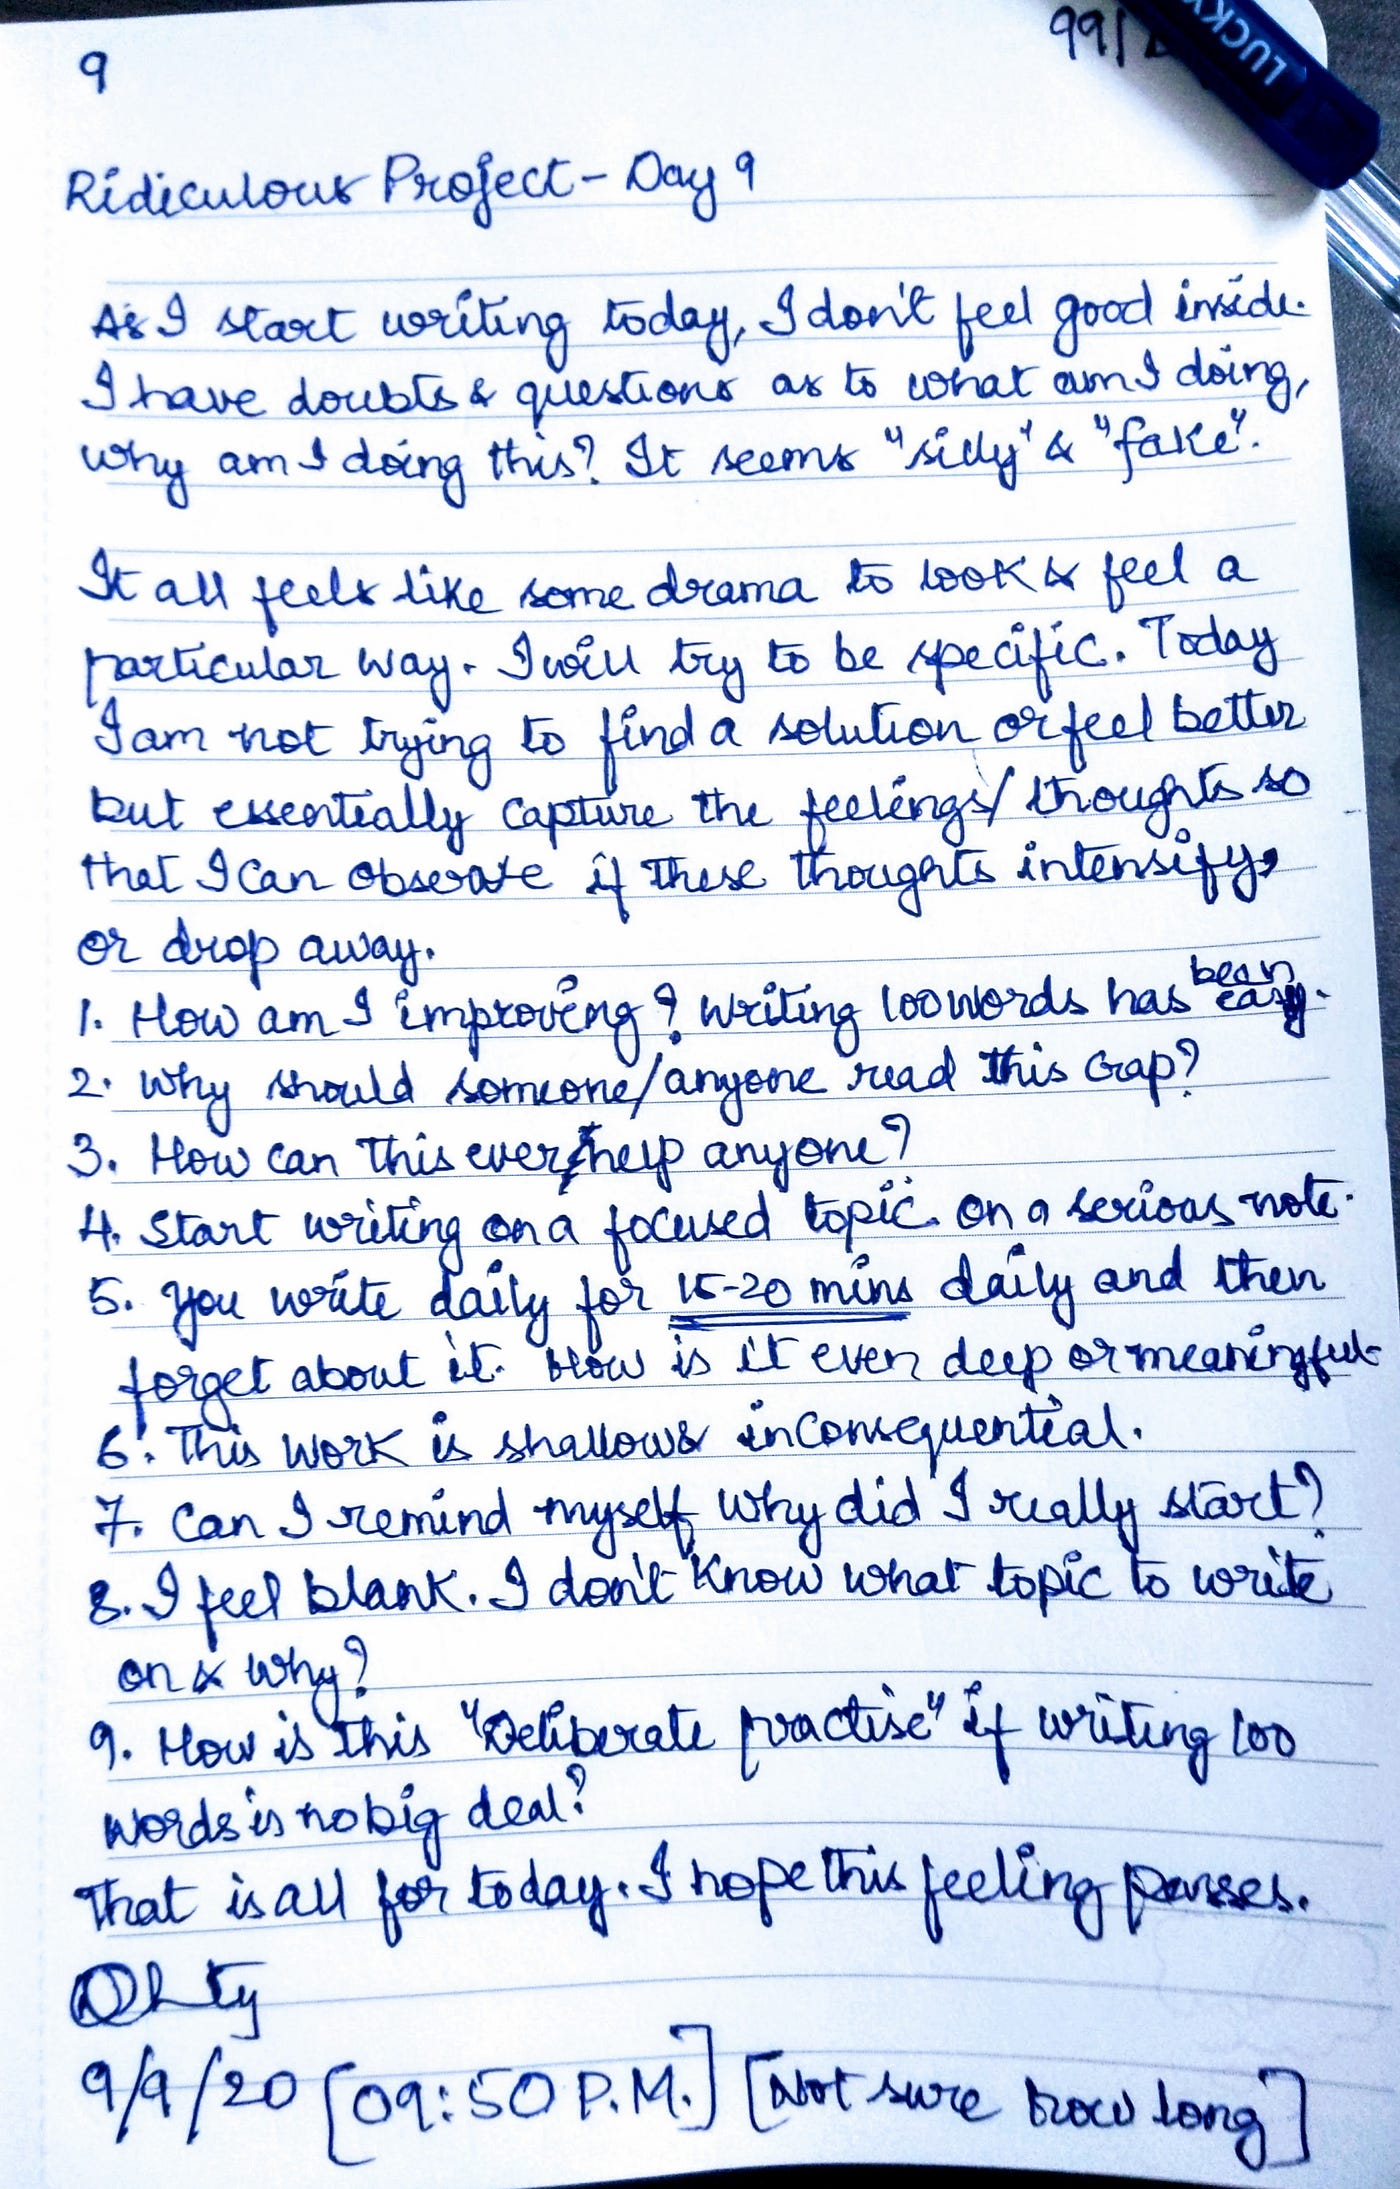 9
99/
LUCKY
Ridiculous Project - Day 9
As I start writing today, I don't feel good inside.
I have doubts & questions as to what am I doing,
why am I doing this? It seems "silly" & "fake".
It all feels like some drama to look & feel a
particular way. I will try to be specific. Today
I am not trying to find a solution or feel better
but essentially capture the feelings/thoughts so
that I can observe if these thoughts intensify,
or drop away.
1. How am I improving? Writing 100 words has been easy.
2. Why should someone/anyone read this crap?
3. How can this ever help anyone?
4. Start writing on a focused topic. on a serious note.
5. You write daily for 15-20 mins daily and then
forget about it. How is it even deep or meaningful.
6. This work is shallow & inconsequential.
7. Can I remind myself why did I really start?
8. I feel blank. I don't know what topic to write
on & why?
9. How is this "Deliberate practise" if writing 100
words is no big deal?
That is all for today. I hope this feeling passes.
9/9/20 [09:50 P.M.] [Not sure how long]